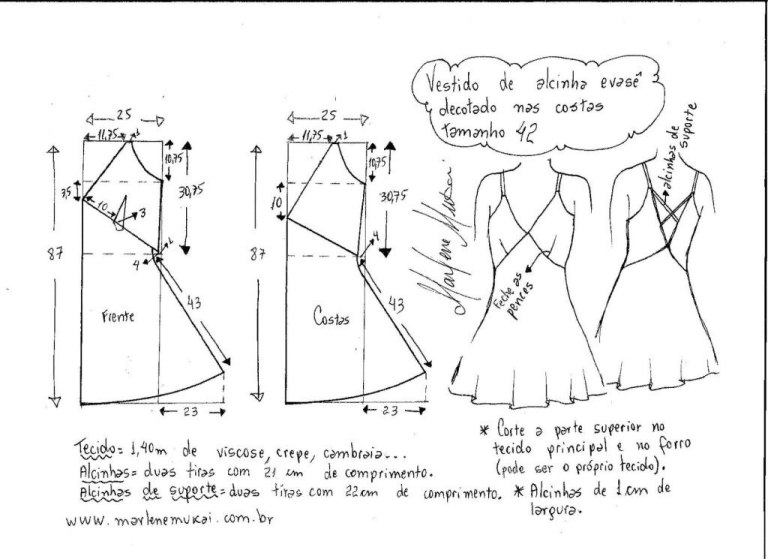 Vestido de alcinha evasê
decotado nas costas
Tamanho 42
25
11,75
1
10,75
7,5
10
3
30,75
87
4
1
43
Frente
23
25
11,75
1
10,75
10
30,75
87
4
43
Costas
23
Marlene Mukai
alcinhas de
suporte
Feche as
pences
Tecido = 1,40m de viscose, crepe, cambraia...
Alcinhas = duas tiras com 21 cm de comprimento.
Alcinhas de suporte = duas tiras com 22 cm de comprimento.
www.marlenemukai.com.br
* Corte a parte superior no
tecido principal e no forro
(pode ser o próprio tecido).
* Alcinhas de 1 cm de
largura.